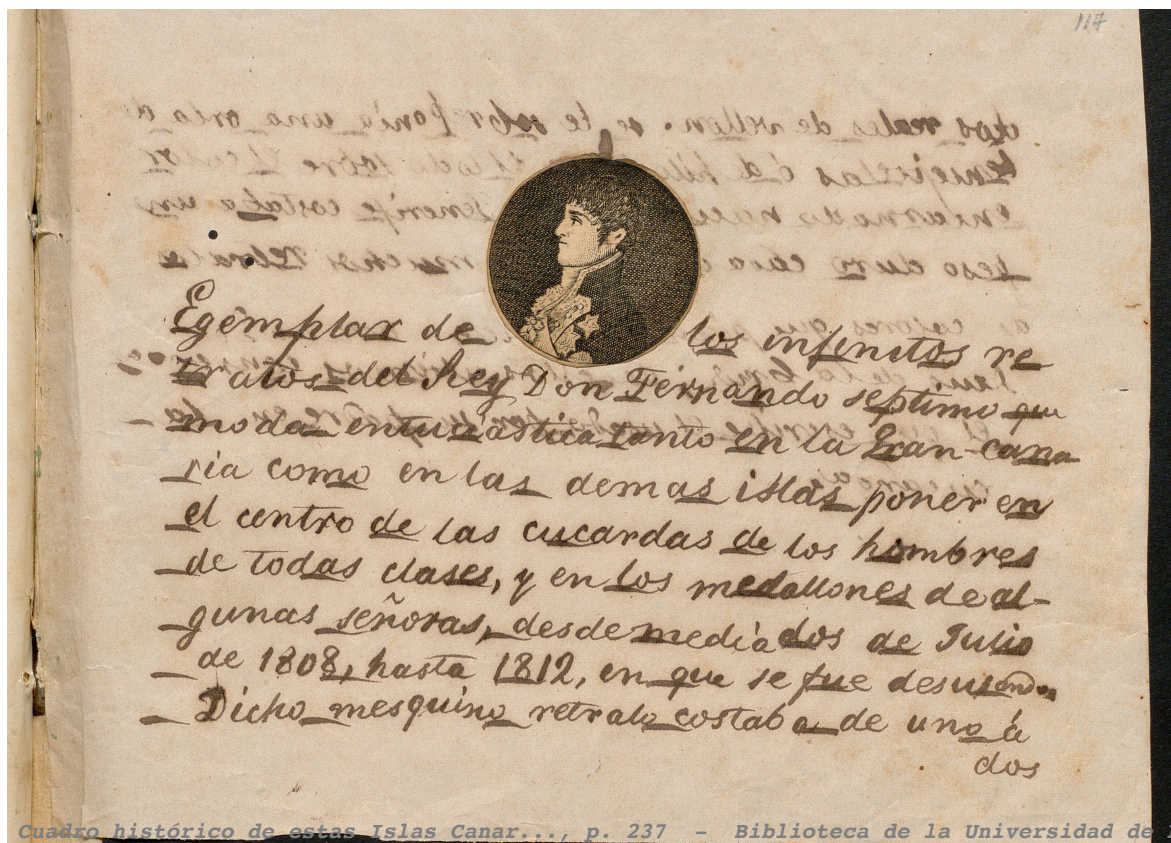 117
Egemplar de los infinitos re
tratos del Rey Don Fernando septimo que
moda entuciastica tanto en la Gran-cana
ria como en las demas islas poner en
el centro de las cucardas de los hombres
de todas clases, y en los medallones de al-
gunas señoras, desde mediados de Julio
de 1808, hasta 1812, en que se fue desusando
Dicho mesquino retrato costaba de uno á
dos
Cuadro histórico de estas Islas Canar..., p. 237 - Biblioteca de la Universidad de